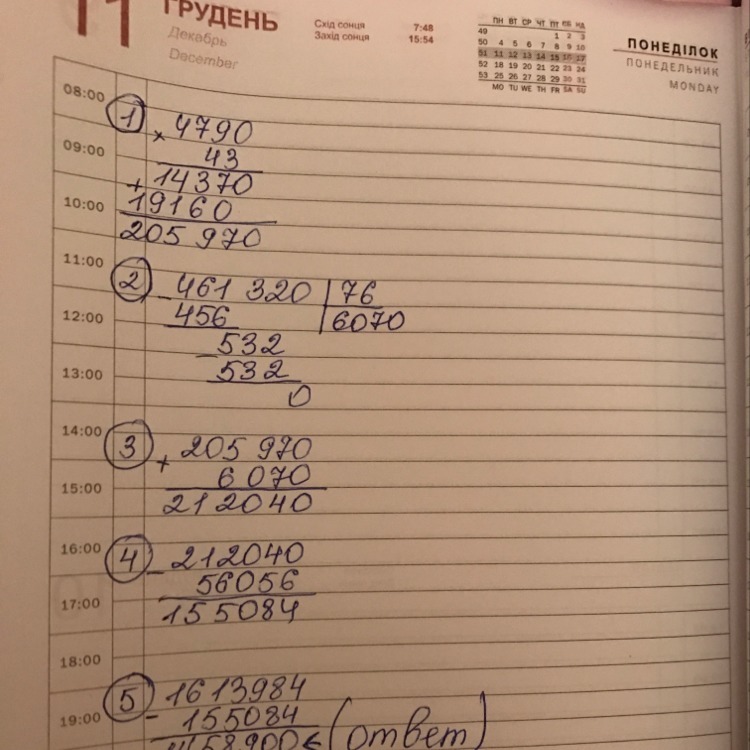 11 ГРУДЕНЬ
Декабрь
December
Схід сонця 7:48
Захід сонця 15:54
ПН ВТ СР ЧТ ПТ СБ НД
49 1 2 3
50 4 5 6 7 8 9 10
51 11 12 13 14 15 16 17
52 18 19 20 21 22 23 24
53 25 26 27 28 29 30 31
MO TU WE TH FR SA SU
ПОНЕДІЛОК
ПОНЕДЕЛЬНИК
MONDAY
08:00
1 × 4790
43
09:00
+ 14370
10:00 19160
205 970
11:00
2 - 461 320 | 76
12:00 456 | 6070
- 532
13:00 532
0
14:00
3 + 205 970
6 070
15:00 212040
16:00
4 - 212040
56056
17:00 155084
18:00
5 - 1613984
19:00 155084
(ответ)